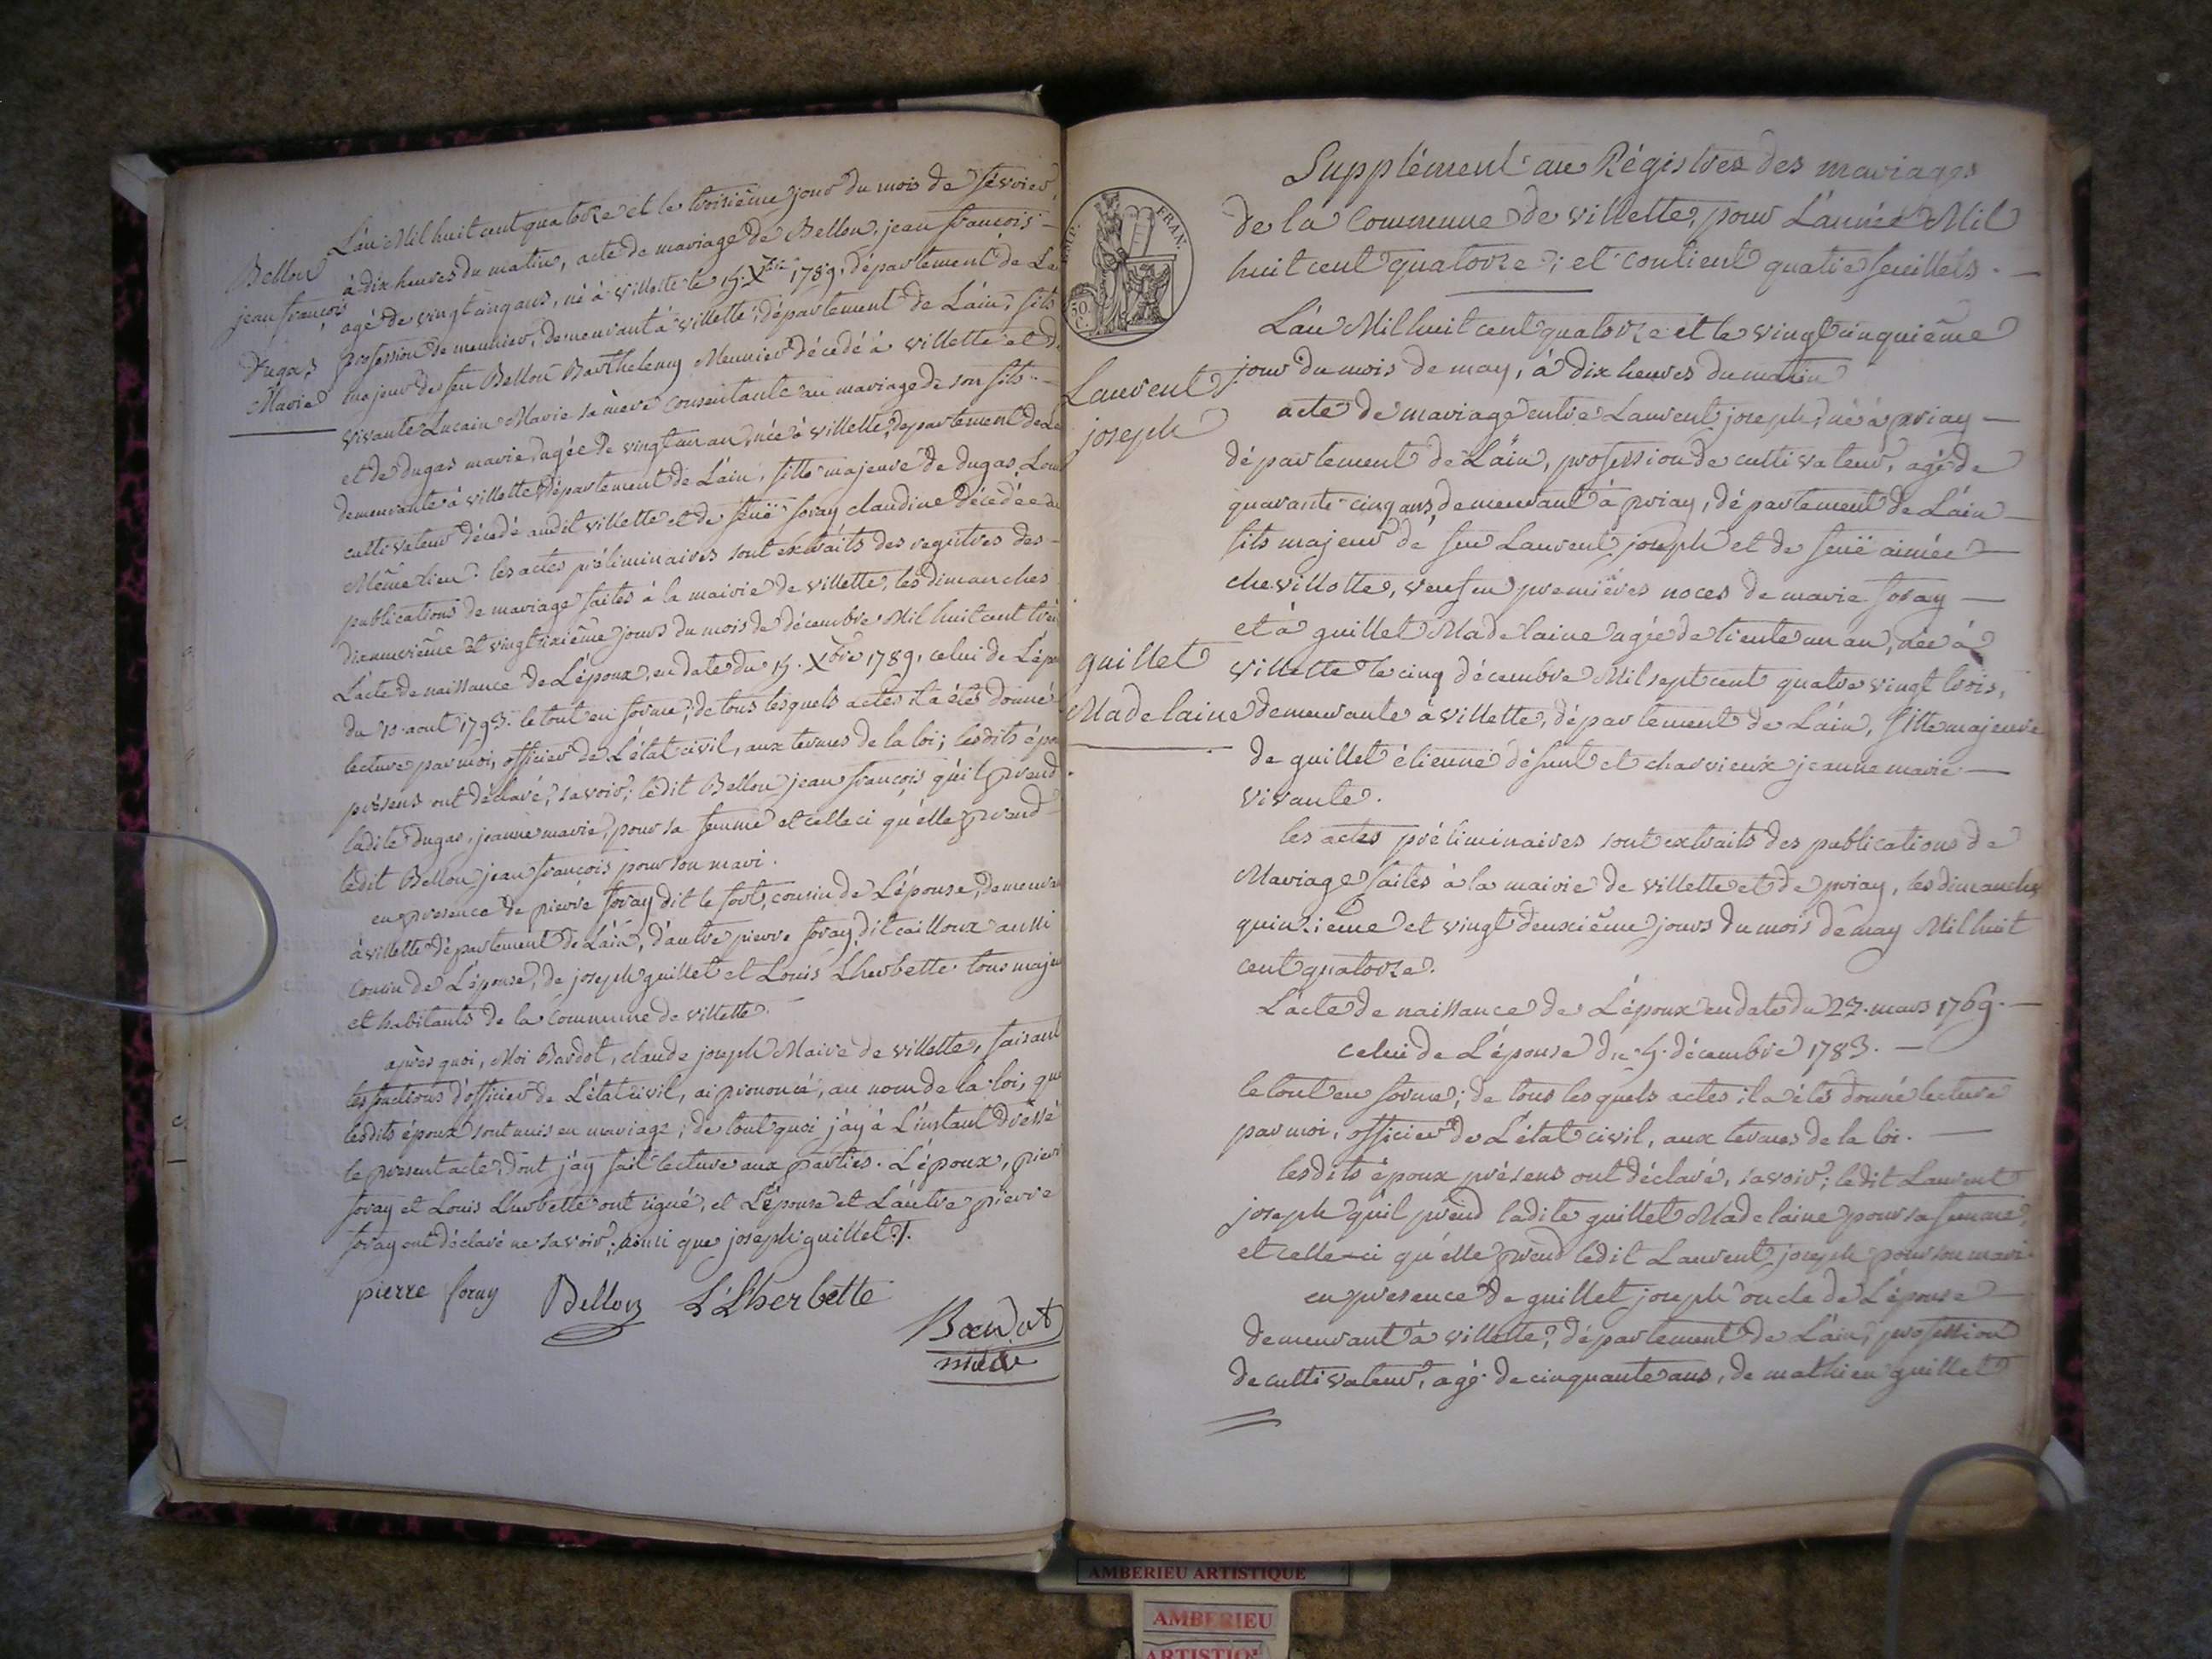 L'an Mil huit cent quatorze et le troisième jour du mois de février
Bellon
jean françois
à dix heures du matin, acte de mariage de Bellon, jean françois
agé de vingt cinq ans, né à villette le 15. Xbre 1789, département de L'ain
Dugas
Marie
profession de meunier, demeurant à villette, département de L'ain, fils
majeur de feu Bellon Barthelemy Meunier décédé à villette et de
vivante Lucain Marie sa mère consentante au mariage de son fils
et de dugas marie agée de vingt un an, née à villette, département de L
demeurante à villette département de L'ain, fille majeure de dugas, Louis
cultivateur décédé audit villette et de feuë foray claudine décédée au
Même lieu. les actes préliminaires sont extraits des registres des
publications de mariage faites à la mairie de villette, les dimanches
dixneuvième et vingt sixième jours du mois de décembre Mil huit cent
L'acte de naissance de L'époux, en date du 15. Xbre 1789, celui de L'épouse
du 10 aout 1793. le tout en forme; de tous lesquels actes il a étés donné
lecture par moi, officier de L'état civil, aux termes de la loi; lesdits époux
présens ont déclaré, savoir; ledit Bellon jean françois qu'il prend
ladite dugas, jeanne marie, pour sa femme et celle ci qu'elle prend
ledit Bellon jean françois pour son mari.
en presence de pierre foray dit le fort, cousin de L'épouse, demeurant
à villette département de L'ain, d'autre pierre foray, dit cailloux aussi
cousin de L'épouse, de joseph guillet et Louis Lherbette tous majeurs
et habitants de la commune de villette.
après quoi, Moi Bardot, claude joseph Maire de villette, faisant
les fonctions d'officier de L'état civil, ai prononcé, au nom de la loi, que
lesdits époux sont unis en mariage; de tout quoi j'ay à L'instant dressé
le present acte, dont j'ay fait lecture aux parties. L'époux, pierre
foray et Louis Lherbette ont signé, et L'épouse et L'autre pierre
foray ont déclaré ne savoir; ainsi que joseph guillet.
pierre foray Bellon L Lherbette
Bardot
maire
Supplément au Régistre des mariages
de la Commune de villette, pour L'année Mil
huit cent quatorze; et contient quatre feuillets.
FRAN.
50
C.
L'an Mil huit cent quatorze et le vingt cinquième
jour du mois de may, à dix heures du matin
Laurent
joseph
acte de mariage entre Laurent joseph, né à priay
département de L'ain, profession de cultivateur, agé de
quarante-cinq ans, demeurant à priay, département de L'ain
fils majeur de feu Laurent joseph et de feuë aimée
chevillotte, veuf en premières noces de marie foray
et à guillet Madelaine agée de trente un an, née à
guillet
Madelaine
villette le cinq décembre Mil sept cent quatre vingt trois,
demeurante à villette, département de L'ain, fille majeure
de guillet étienne défunt et charvieux jeanne marie
vivante.
les actes préliminaires sont extraits des publications de
Mariage faites à la mairie de villette et de priay, les dimanches
quinzieme et vingt deuxième jours du mois de may Mil huit
cent quatorze.
L'acte de naissance de L'époux en date du 27. mars 1769.
celui de L'épouse du 5. décembre 1783.
le tout en forme; de tous lesquels actes il a étés donné lecture
par moi, officier de L'état civil, aux termes de la loi.
lesdits époux présens ont déclaré, savoir; ledit Laurent
joseph qu'il prend ladite guillet Madelaine pour sa femme,
et celle-ci qu'elle prend ledit Laurent joseph pour son mari
en presence de guillet joseph oncle de L'épouse
demeurant à villette, département de L'ain, profession
de cultivateur, agé de cinquante ans, de mathieu guillet
AMBERIEU ARTISTIQUE
AMBERIEU
ARTISTIQUE